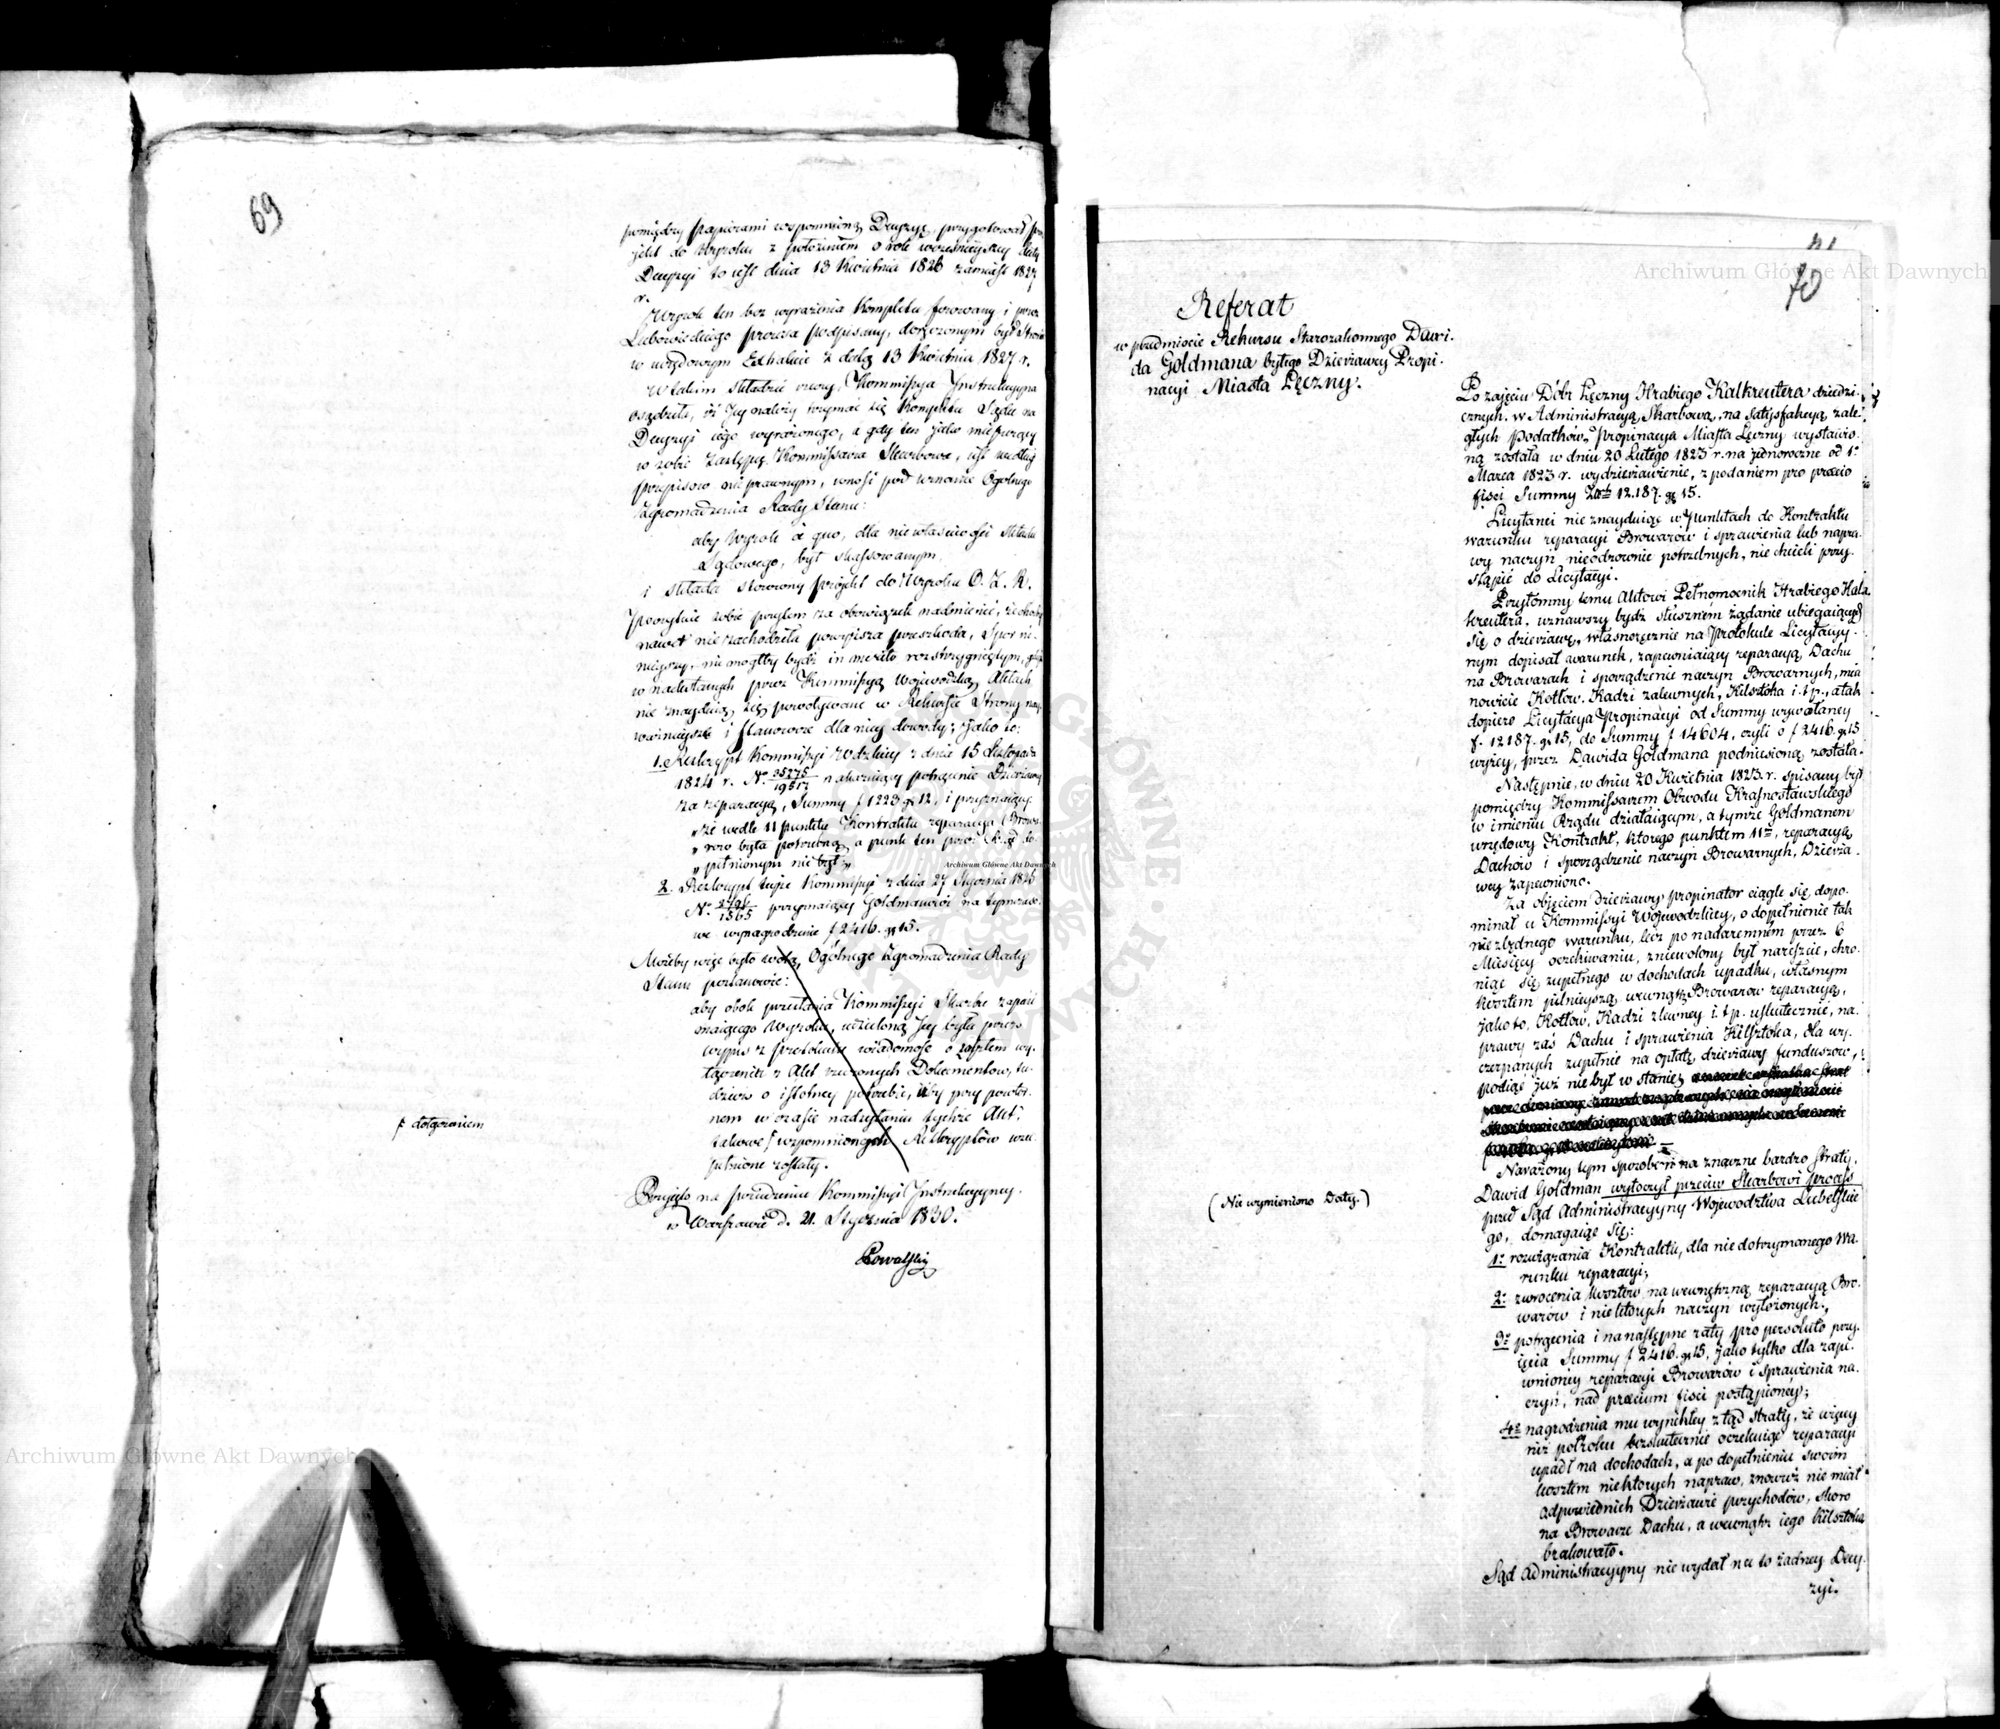 69
pomiędzy papierami wspomnioną Decyzyę, przygotował pro
jekt do Wyroku z położeniem o rok wcześnieyszey daty
Decyzyi to iest dnia 13 Kwietnia 1826 zamiast 1827
r.
Wyrok ten bez wyrażenia Kompletu ferowany i przez
Lubowidzkiego Prezesa podpisany, doręczonym był Stronie
w urzędowym Extrakcie z datą 13 Kwietnia 1827 r.
W takim składzie rzeczy, Kommissya Instrukcyyna
osądziła, iż Jey należy trzymać się Kompletu Sądu na
Decyzyi iego wyrażonego, a gdy ten jako mieszczący
w sobie Zastępcę Kommissarza Skarbowe, iest według
przepisow nieprawnym, wnosi pod uznanie Ogolnego
Zgromadzenia Rady Stanu:
aby Wyrok à quo, dla niewłaściwości Składu
Sądowego, był skassowanym,
i składa stosowny projekt do Wyroku O. Z. R.
Poczytuie sobie przytem za obowiązek nadmienić, że choćby
nawet nie zachodziła powyższa przeszkoda, Spor ni-
nieyszy, nie mogłby bydź in merito rozstrzygniętym, gdyż
w nadesłanych przez Kommissyą Wojewodzką Aktach
nie znayduią się powoływane w Rekursie Strony nay-
ważnieysze i stanowcze dla niey dowody; jako to:
1. Reskrypt Kommissyi Wodzkiey z dnia 15 Listopada
1824 r. No 35275/19517 nakazuiący potrącenie Dzierżawcy
za reparacyą, Summy f 1223 gr 12, i przyznaiący
„że wedle 11 punktu Kontraktu reparacya Browa-
„row była potrzebną, a punkt ten przez Rząd do-
„pełnionym nie był„
2. Reskrypt teyże Kommissyi z dnia 27 Stycznia 1825
No. 2796/1565 przyznaiący Goldmanowi na tymczaso-
we wynagrodzenie f 2416. gr 15.
Możeby więc było wolą, Ogólnego Zgromadzenia Rady
Stanu postanowić:
aby obok przesłania Kommissyi Skarbu zapaść
maiącego Wyroku, udzieloną Jey była przez
wypis z protokułu wiadomość o zaszłem wy-
łączeniu z Akt rzeczonych Dokumentow, tu-
dzież o istotney potrzebie, iżby przy powtór-
nem w czasie nadesłaniu tychże Akt,
takowe ƒ wspomnionych Reskryptów uzu-
pełnione zostały.
ƒ dołączeniem
Przyjęto na posiedzeniu Kommissyi Instrukcyyney.
w Warszawie d. 21. Stycznia 1830.
Kowalski
70
Referat
w przedmiocie Rekursu Starozakonnego Dawi-
da Goldmana byłego Dzierżawcy Propi-
nacyi Miasta Łęczny.
Po zajęciu Dóbr Łęczny Hrabiego Kalkreutera dziedzi-
cznych, w Administracyą Skarbową, na satysfakcyą zale-
głych podatków, propinacya Miasta Łęczny wystawio-
ną została w dniu 20 Lutego 1823 r. na jednoroczne od 1o
Marca 1823 r. wydzierżawienie, z podaniem pro precio
fisci Summy Złt 12.187. gr 15.
Licytanci nie znayduiąc w punktach do Kontraktu
warunku reparacyi Browarów i sprawienia lub napra-
wy naczyń nieodzownie potrzebnych, nie chcieli przy-
stąpić do Licytacyi.
Przytomny temu Aktowi Pełnomocnik Hrabiego Kalk-
kreutera, uznawszy bydź słusznem żądanie ubiegaiących
się o dzierżawę, własnoręcznie na Protokule Licytacyy-
nym dopisał warunek, zapewniaiący reparacyą Dachu
na Browarach i sporządzenie naczyn Browarnych, mia-
nowicie Kotłow, Kadzi zalewnych, Kilsztoka i. t p., a tak
dopiero Licytacya Propinacyi od Summy wywołaney
f. 12187. gr 15, do Summy f 14604, czyli o f 2416. gr 15
wyżey, przez Dawida Goldmana podniesioną została.
Następnie, w dniu 20 Kwietnia 1823. r. spisany był
pomiędzy Kommissarzem Obwodu Krasnostawskiego
w imieniu Rządu działaiącym, a tymże Goldmanem
urzędowy Kontrakt, ktorego punktem 11m, reparacyą
Dachów i sporządzenie naczyn Browarnych, Dzierża-
wcy zapewniono.
Za objęciem Dzierżawy propinator ciągle się dopo-
minał u Kommissyi Wojewodzkiey, o dopełnienie tak
niezbędnego warunku, lecz po nadaremnem przez 6
Miesięcy oczekiwaniu, zniewolony był nareszcie, chro-
niąc się zupełnego w dochodach upadku, własnym
kosztem pilnieyszą wewnątrz Browarow reparacyą,
jako to, Kotłow, Kadzi zlewney i. t p. uskutecznić, na-
prawy zaś Dachu i sprawienia Kilsztoka, dla wy-
czerpanych zupełnie na opłatę dzierżawy funduszow,
podiąć już nie był w stanie,
Narażony tym sposobem na znaczne bardzo straty,
Dawid Goldman wytoczył przeciw Skarbowi process
przed Sąd Administracyyny Wojewodztwa Lubelskie-
go, domagaiąc się:
1o rozwiązania Kontraktu, dla niedotrzymanego Wa-
runku reparacyi;
2o zwrocenia kosztow na wewnętrzną reparacyą Bro-
warów i niektorych naczyn wyłożonych.,
3o potrącenia i na następne raty pro persoluto przy-
ięcia Summy f 2416. gr 15, jako tylko dla zape-
wnioney reparacyi Browarów i sprawienia na-
czyń, nad precium fisci postąpioney;
4o nagrodzenia mu wynikłey z tąd straty, że więcey
niż półroku bezskutecznie oczekuiąc reparacyi
upadł na dochodach, a po dopełnieniu swoim
kosztem niektorych napraw, znowuż nie miał
odpowiednich Dzierżawie przychodów, skoro
na Browarze Dachu, a wewnątrz iego kilsztoka
brakowało.
(Nie wymieniono Daty.)
Sąd Administracyyny nie wydał na to żadney Decy-
zyi.
Archiwum Główne Akt Dawnych
Archiwum Główne Akt Dawnych
Archiwum Główne Akt Dawnych